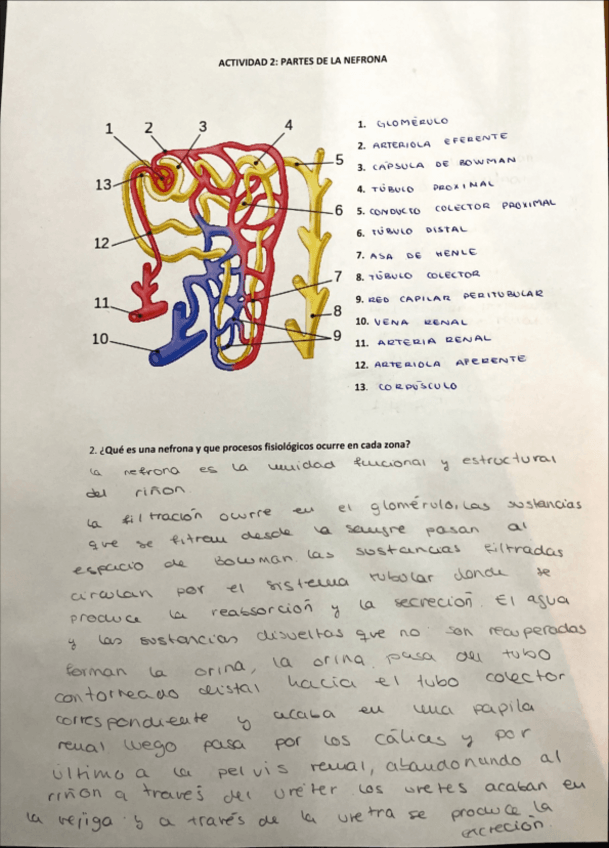 ACTIVIDAD 2: PARTES DE LA NEFRONA
1
2
3
4
5
6
7
8
9
10
11
12
13
1. GLOMÉRULO
2. ARTERIOLA EFERENTE
3. CÁPSULA DE BOWMAN
4. TÚBULO PROXIMAL
5. CONDUCTO COLECTOR PROXIMAL
6. TÚBULO DISTAL
7. ASA DE HENLE
8. TÚBULO COLECTOR
9. RED CAPILAR PERITUBULAR
10. VENA RENAL
11. ARTERIA RENAL
12. ARTERIOLA AFERENTE
13. CORPÚSCULO
2. ¿Qué es una nefrona y que procesos fisiológicos ocurre en cada zona?
la nefrona es la unidad funcional y estructural
del riñon.
La filtración ocurre en el glomérulo, las sustancias
que se filtran desde la sangre pasan al
espacio de Bowman. las sustancias filtradas
circulan por el sistema tubolar donde se
produce la reabsorción y la secreción. El agua
y las sustancias disueltas que no son recuperadas
forman la orina, la orina pasa del tubo
contorneado distal hacia el tubo colector
correspondiente y acaba en una papila
renal luego pasa por los cálices y por
último a la pelvis renal, abandonando al
riñon a través del uréter. los uretes acaban en
la vejiga y a través de la uretra se produce la
excreción.